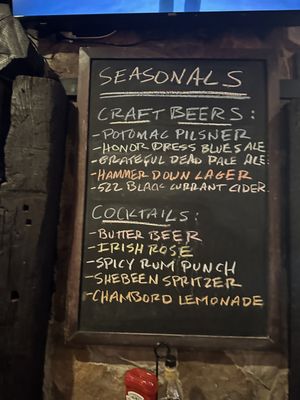 SEASONALS
CRAFT BEERS:
-POTOMAC PILSNER
-HONOR DRESS BLUES ALE
-GRATEFUL DEAD PALE ALE
-HAMMER DOWN LAGER
-522 BLACK CURRANT CIDER
COCKTAILS:
-BUTTER BEER
-IRISH ROSE
-SPICY RUM PUNCH
-SHEBEEN SPRITZER
-CHAMBORD LEMONADE